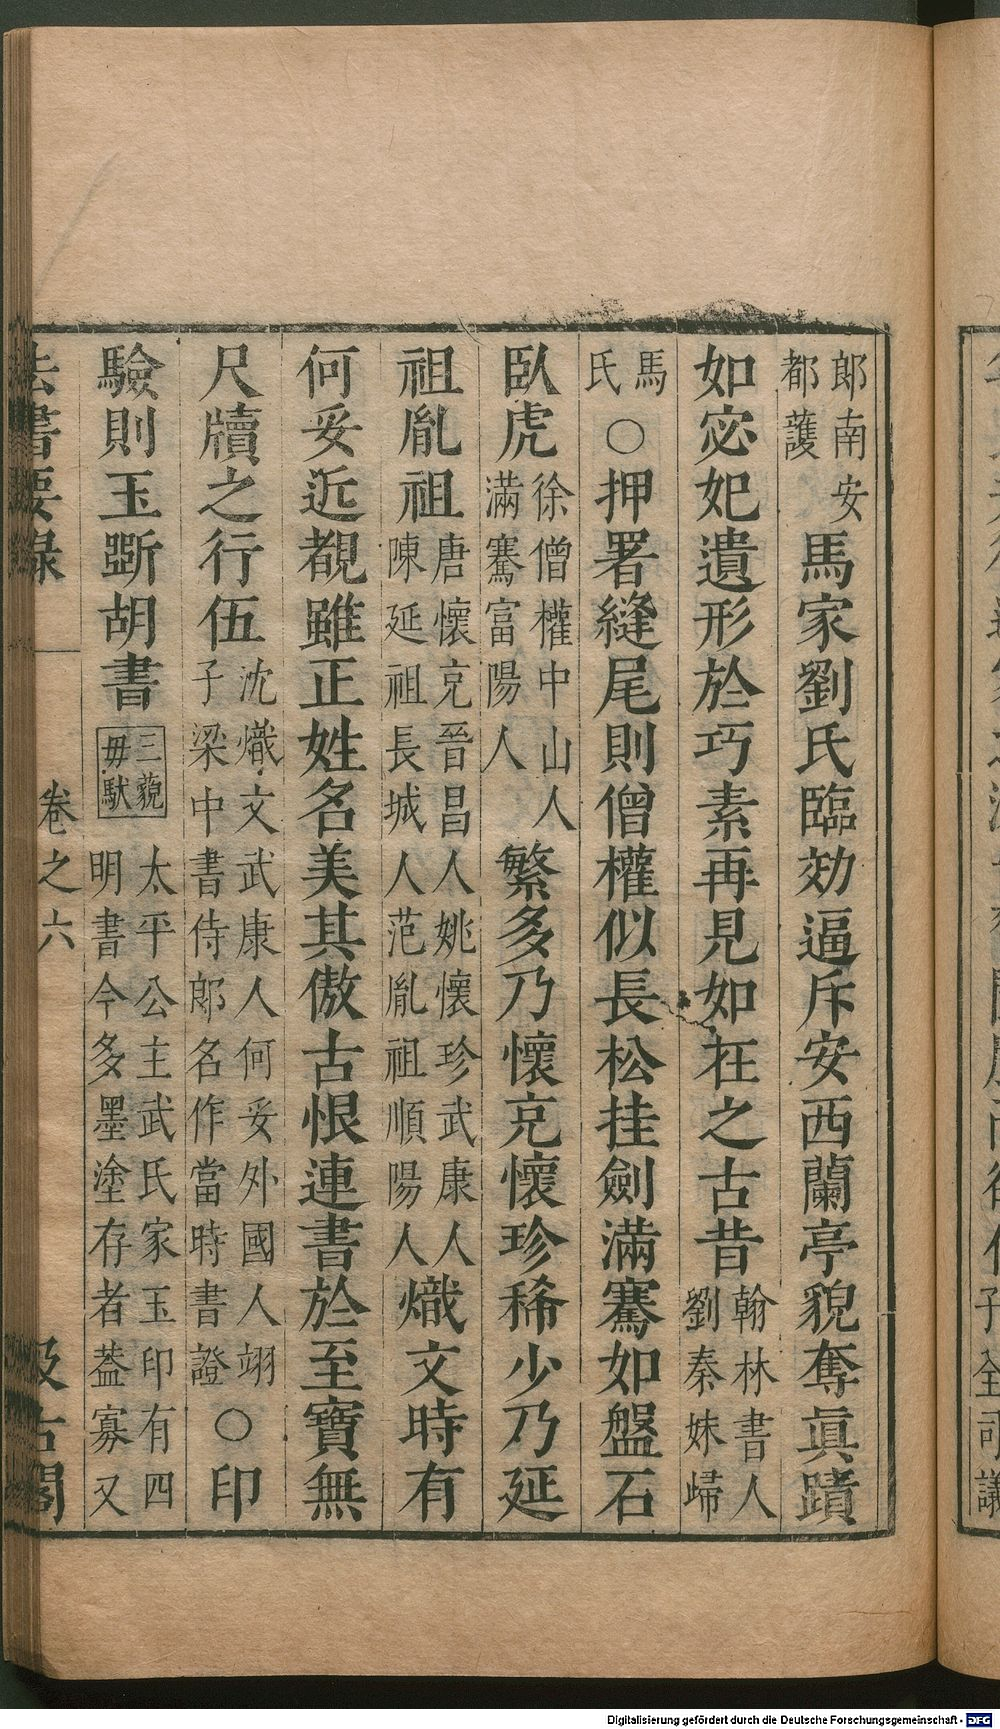 郞南安都護馬家劉氏臨効逼斥安西蘭亭貌奪眞蹟
如宓妃遺形於巧素再見如在之古昔翰林書人劉秦妹歸
馬氏○押署縫尾則僧權似長松挂劍滿騫如盤石
臥虎徐僧權中山人滿騫富陽人繁多乃懷克懷珍稀少乃延
祖胤祖唐懷克晉昌人姚懷珍武康人陳延祖長城人范胤祖順陽人熾文時有
何妥近覩雖正姓名美其傲古恨連書於至寶無
尺牘之行伍沈熾文武康人何妥外國人翊子梁中書侍郞名作當時書證○印
驗則玉斲胡書三藐毋馱太平公主武氏家玉印有四明書今多墨塗存者蓋寡又
法書要錄 卷之六 汲古閣
Digitalisierung gefördert durch die Deutsche Forschungsgemeinschaft - DFG